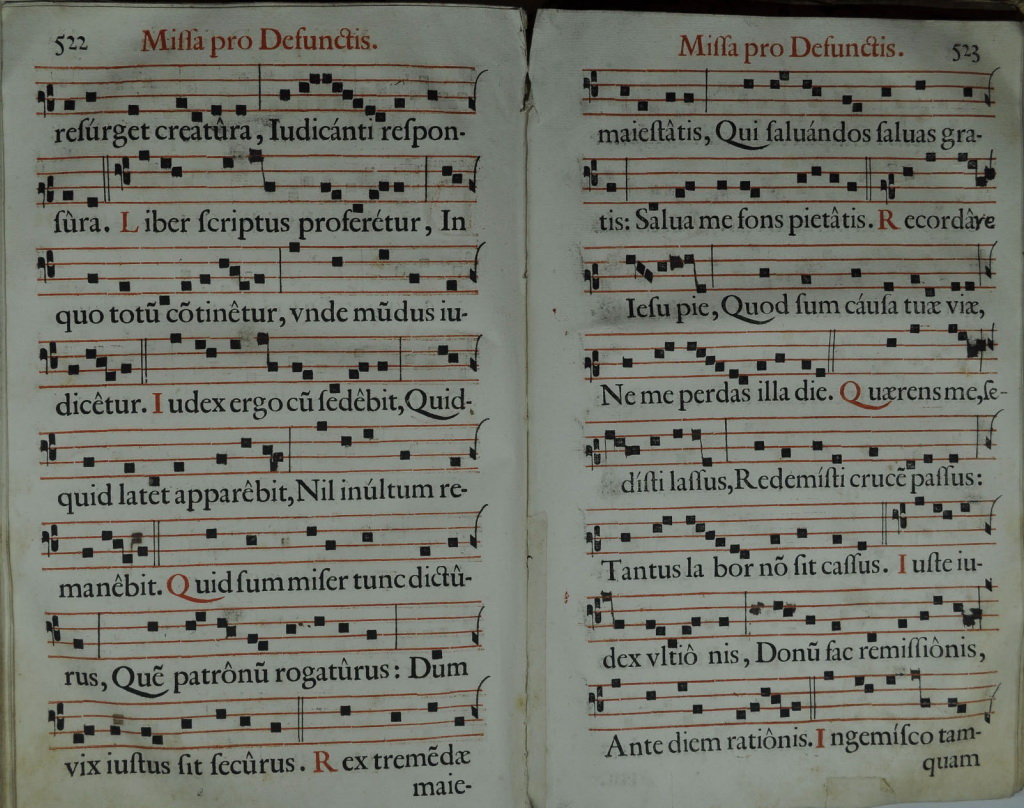 522 Miſſa pro Defunctis.
reſúrget creatûra, Iudicánti reſpon-
ſûra. L iber ſcriptus proferétur, In
quo totũ cõtinêtur, vnde mũdus iu-
dicêtur. I udex ergo cũ ſedêbit, Quid-
quid latet apparêbit, Nil inúltum re-
manêbit. Quid ſum miſer tunc dictû-
rus, Quẽ patrônũ rogatûrus: Dum
vix iuſtus ſit ſecûrus. R ex tremẽdæ
maie-
Miſſa pro Defunctis. 523
maieſtâtis, Qui ſaluándos ſaluas gra-
tis: Salua me fons pietâtis. R ecordâre
Ieſu pie, Quod ſum cáuſa tuæ viæ,
Ne me perdas illa die. Quærens me, ſe-
díſti laſſus, Redemíſti crucẽ paſſus:
Tantus la bor nõ ſit caſſus. I uſte iu-
dex vltiô nis, Donũ fac remiſſiônis,
Ante diem ratiônis. I ngemíſco tam-
quam